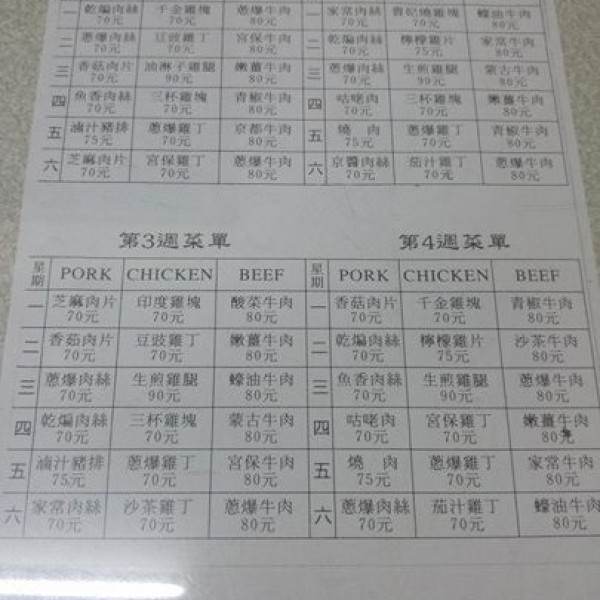 一 乾煸肉絲 千金雞塊 蔥爆牛肉 一 家常肉絲 貴妃燒雞塊 蠔油牛肉
70元 70元 80元 70元 70元 80元
二 蔥爆肉絲 豆豉雞丁 宮保牛肉 二 乾煸肉絲 檸檬雞片 家常牛肉
70元 70元 80元 70元 75元 80元
三 香菇肉片 油淋子雞腿 嫩薑牛肉 三 蔥爆肉絲 生煎雞腿 蒙古牛肉
70元 90元 80元 70元 90元 80元
四 魚香肉絲 三杯雞塊 青椒牛肉 四 咕咾肉 三杯雞塊 嫩薑牛肉
70元 70元 80元 70元 70元 80元
五 滷汁豬排 蔥爆雞丁 京都牛肉 五 燒 肉 蔥爆雞丁 青椒牛肉
75元 70元 80元 75元 70元 80元
六 芝麻肉片 宮保雞丁 蔥爆牛肉 六 京醬肉絲 茄汁雞丁 蔥爆牛肉
70元 70元 80元 70元 70元 80元
第3週菜單 第4週菜單
星期 PORK CHICKEN BEEF 星期 PORK CHICKEN BEEF
一 芝麻肉片 印度雞塊 酸菜牛肉 一 香菇肉片 千金雞塊 青椒牛肉
70元 70元 80元 70元 70元 80元
二 香茹肉片 豆豉雞丁 嫩薑牛肉 二 乾煸肉絲 檸檬雞片 沙茶牛肉
70元 70元 80元 70元 75元 80元
三 蔥爆肉絲 生煎雞腿 蠔油牛肉 三 魚香肉絲 生煎雞腿 蔥爆牛肉
70元 90元 80元 70元 90元 80元
四 乾煸肉絲 三杯雞塊 蒙古牛肉 四 咕咾肉 宮保雞丁 嫩薑牛肉
70元 70元 80元 70元 70元 80元
五 滷汁豬排 蔥爆雞丁 宮保牛肉 五 燒 肉 蔥爆雞丁 家常牛肉
75元 70元 80元 75元 70元 80元
六 家常肉絲 沙茶雞丁 蔥爆牛肉 六 蔥爆肉絲 茄汁雞丁 蠔油牛肉
70元 70元 80元 70元 70元 80元